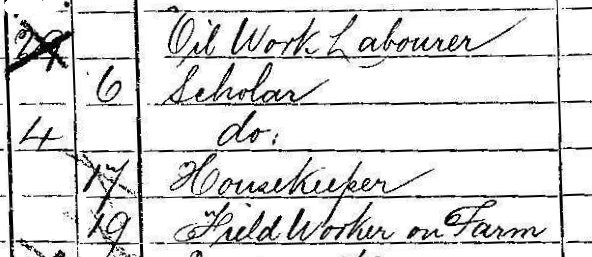 29 Oil Work Labourer
6 Scholar
4 do:
17 Housekeeper
19 Field Worker on Farm